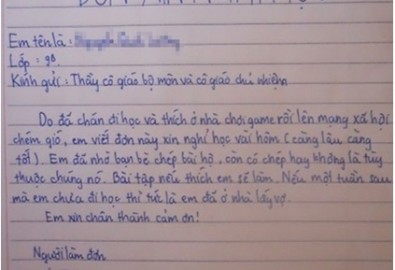 Em tên là:
Lớp: 9B
Kính gửi: Thầy cô giáo bộ môn và cô giáo chủ nhiệm
Do đã chán đi học và thích ở nhà chơi game rồi lên mạng xã hội
chém gió, em viết đơn này xin nghỉ học vài hôm (càng lâu càng
tốt). Em đã nhờ bạn bè chép bài hộ, còn có chép hay không là tùy
thuộc chúng nó. Bài tập nếu thích em sẽ làm. Nếu một tuần sau
mà em chưa đi học thì tức là em đã ở nhà lấy vợ.
Em xin chân thành cảm ơn!
Người làm đơn